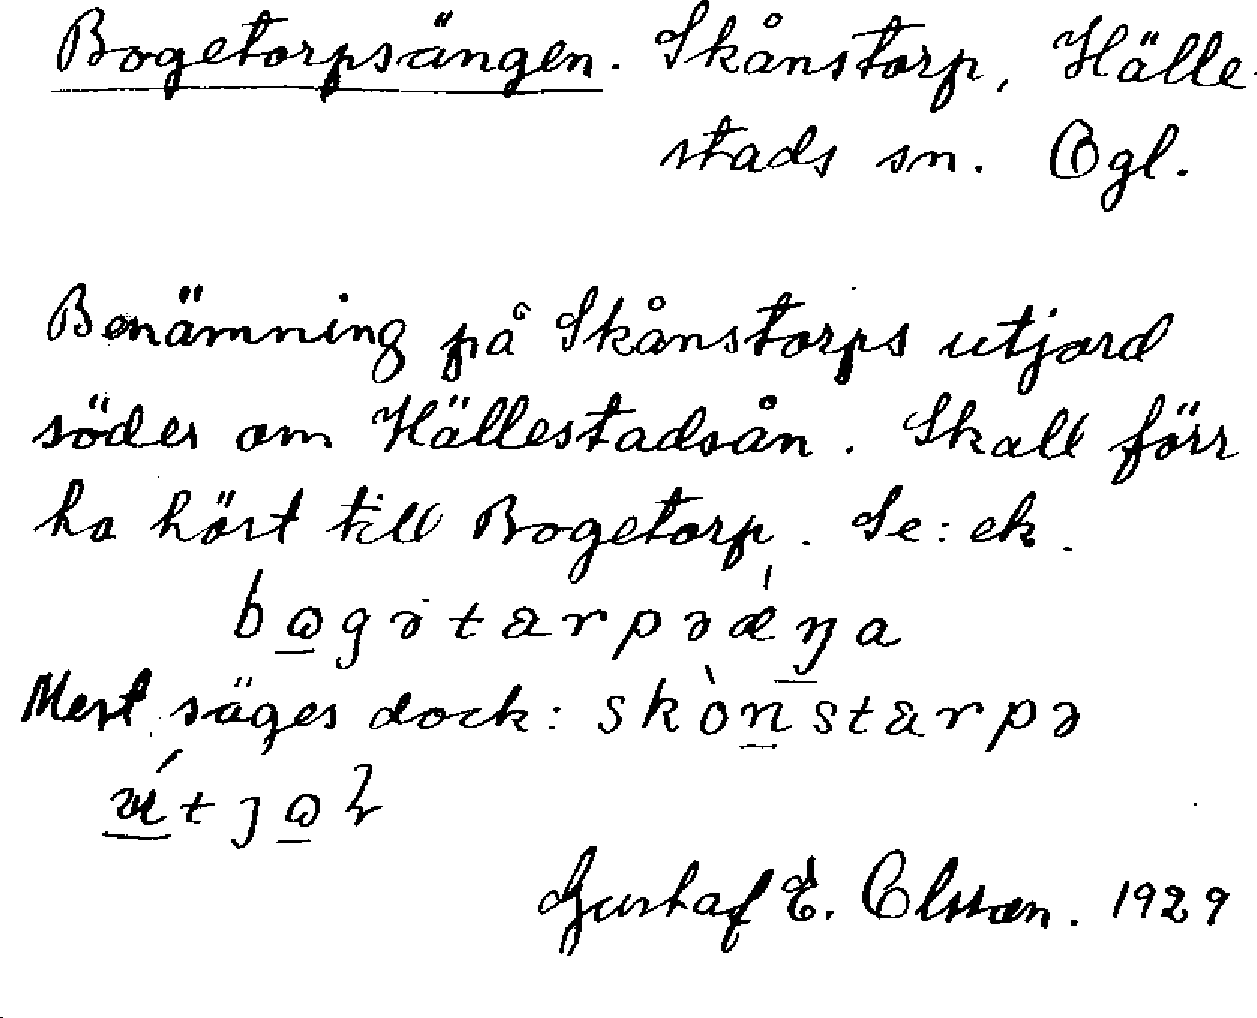 Bogetorpsängen. Skånstorp, Hälle-
stads sn. Ögl.
Benämning på Skånstorps utjord
söder om Hällestadsån. Skall förr
ha hört till Bogetorp. Se: ek.
Mest säges dock:
Gustaf E. Olsson. 1929